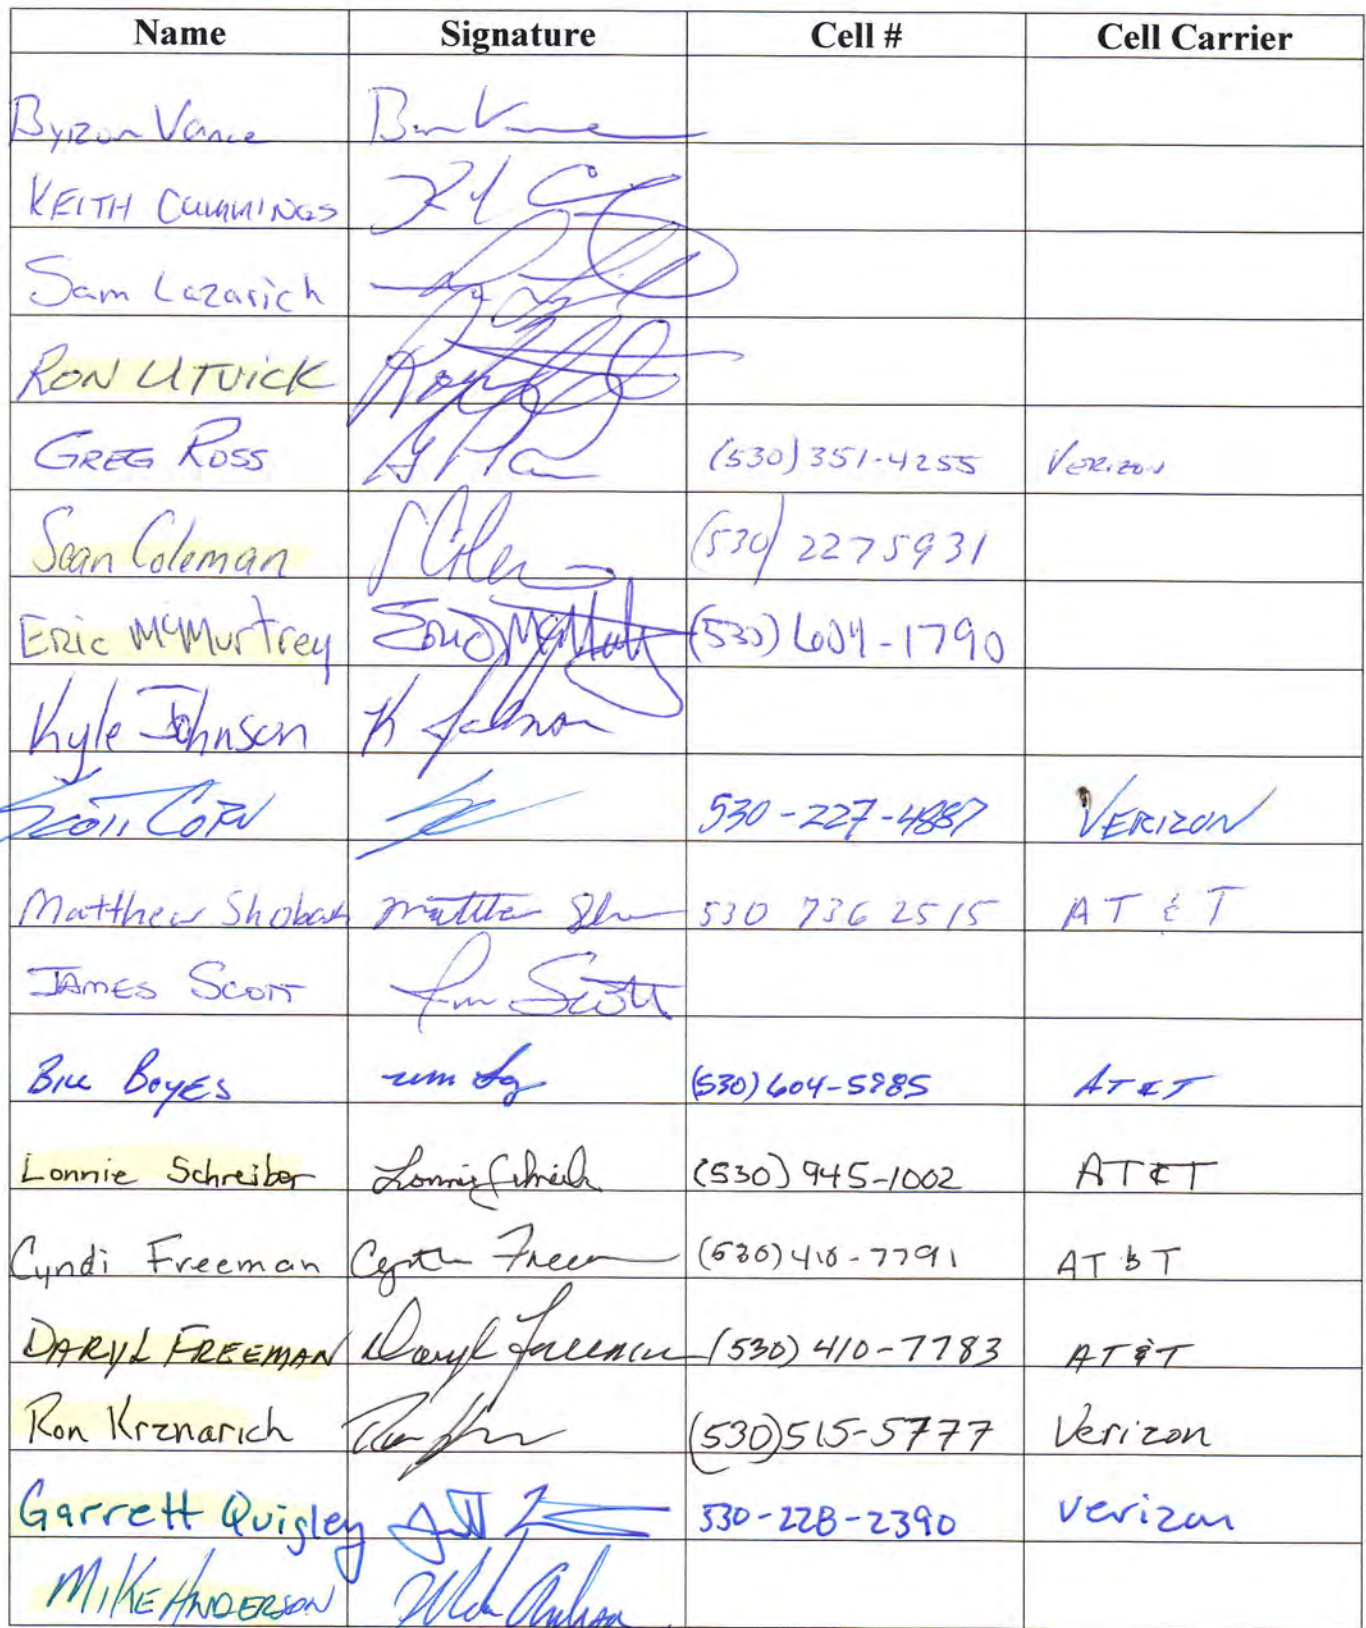 Name Signature Cell # Cell Carrier
Byron Vance
KEITH CUMMINGS
Sam Lazarich
RON UTVICK
GREG ROSS (530) 351-4255 VERIZON
Sean Coleman (530) 2275931
ERIC McMurtrey (530) 604-1790
Kyle Johnson K Johnson
SCOTT CORN 530-227-4887 VERIZON
Matthew 530 736 2515 AT & T
JAMES SCOTT Jim Scott
BILL BOYES (530) 604-5985 AT&T
Lonnie Schreiber (530) 945-1002 AT&T
Cyndi Freeman (530) 410-7791 AT & T
DARYL FREEMAN Daryl Freeman (530) 410-7783 AT&T
Ron Krznarich (530) 515-5777 Verizon
Garrett Quigley 530-228-2390 verizon
MIKE ANDERSON